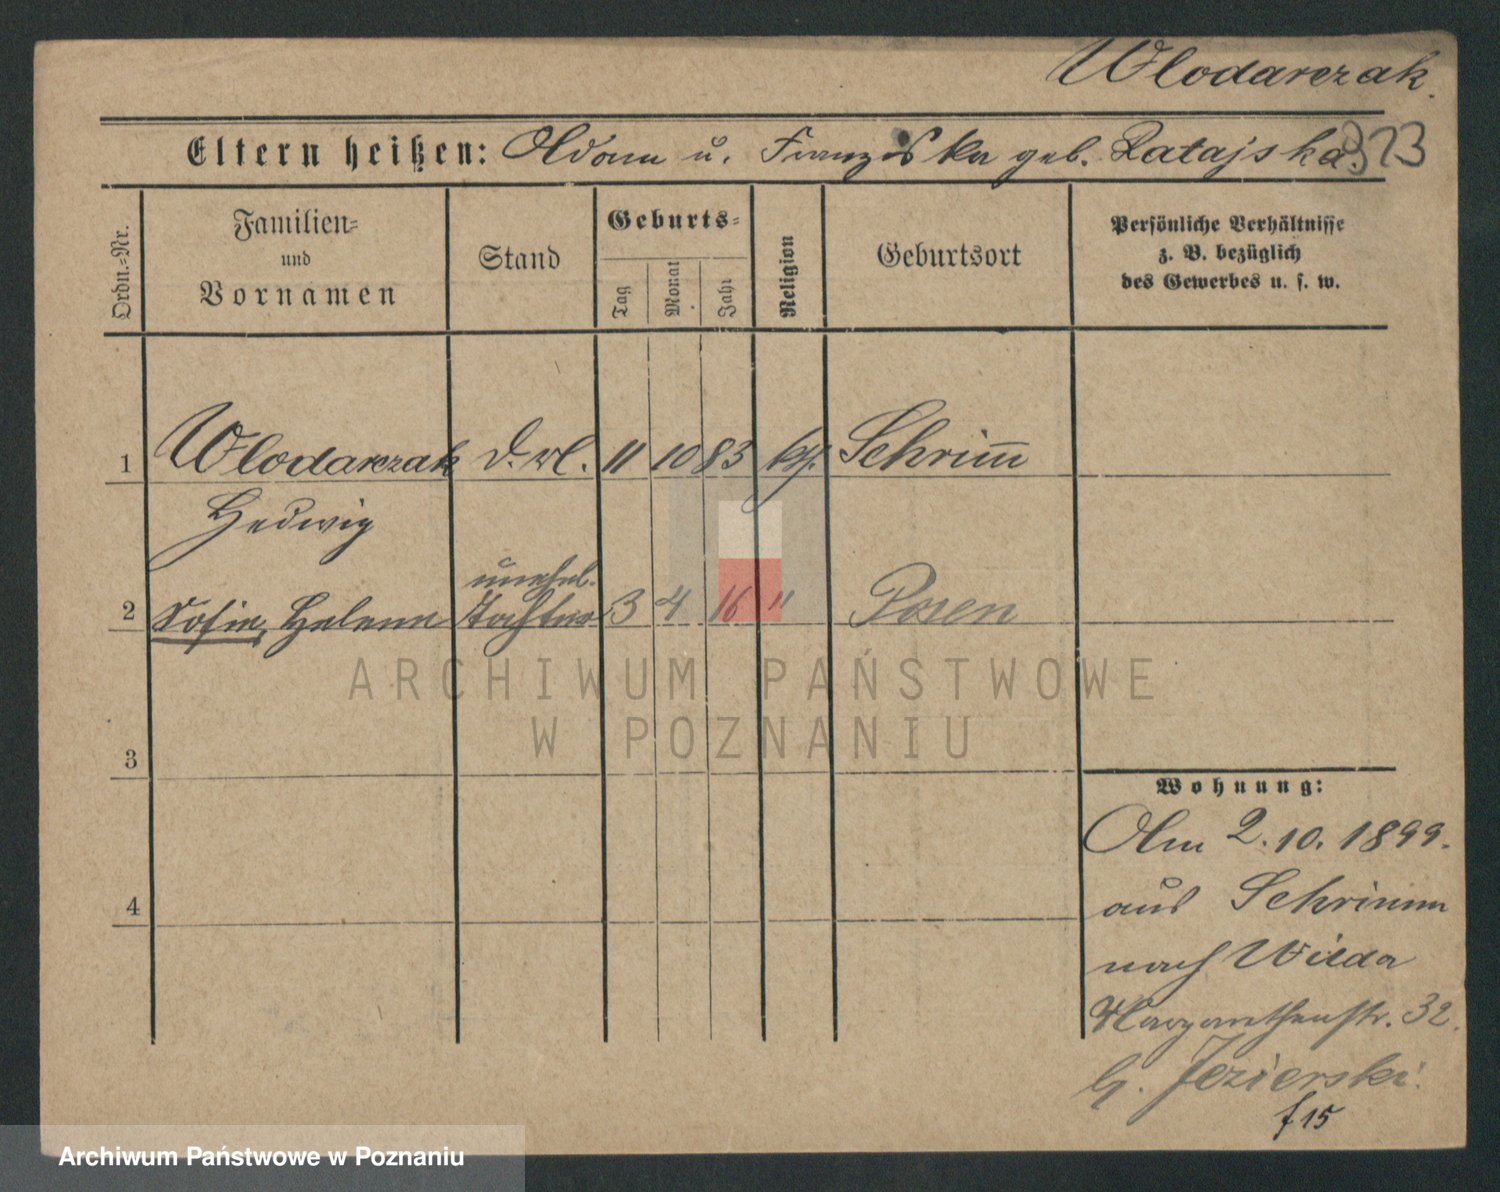 Wlodarczak.
Eltern heißen: Adam u. Franziska geb. Ratajska.
323
Ordn.-Nr.
Familien-
und
Vornamen
Stand
Geburts-
Tag
Monat
Jahr
Religion
Geburtsort
Persönliche Verhältnisse
z. B. bezüglich
des Gewerbes u. s. w.
1 Wlodarczak 11 10 83 kth. Schrimm
Hedwig
unehel.
2 Sofie, Helene Tochter 3 4 16 " Posen
3
4
Wohnung:
Am 2.10.1899.
aus Schrimm
nach Wilda
Margarethenstr. 32.
b. Jezierski.
f 15
ARCHIWUM PAŃSTWOWE
W POZNANIU
Archiwum Państwowe w Poznaniu